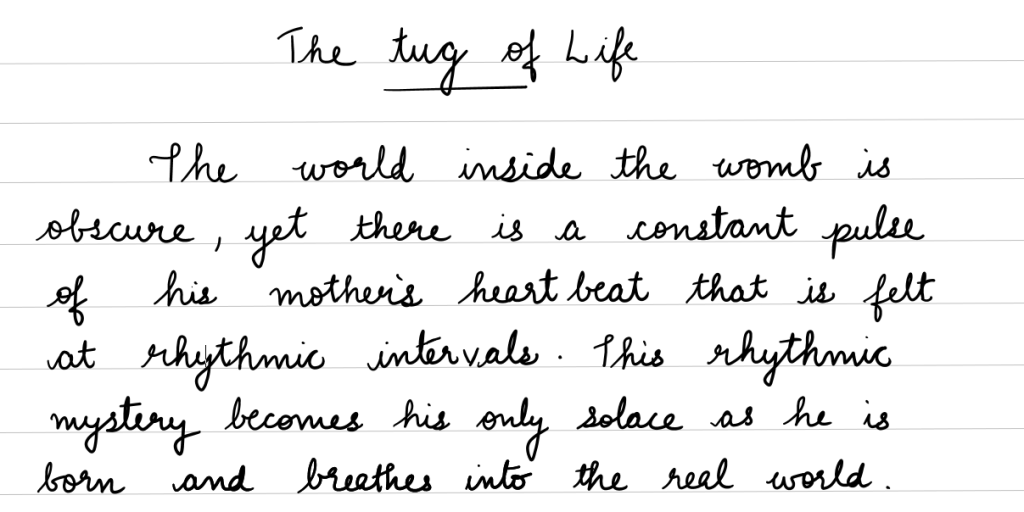 The tug of Life
The world inside the womb is
obscure, yet there is a constant pulse
of his mother's heart beat that is felt
at rhythmic intervals. This rhythmic
mystery becomes his only solace as he is
born and breathes into the real world.